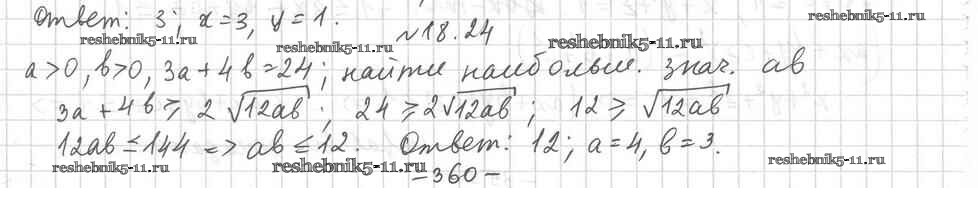 Ответ: 3; x=3, y=1.
reshebnik5-11.ru
reshebnik5-11.ru
reshebnik5-11.ru
reshebnik5-11.ru
№18.24
a>0, b>0, 3a+4b=24; найти наибольш. знач. ab
3a+4b ≥ 2√12ab; 24 ≥ 2√12ab; 12 ≥ √12ab
12ab ≤ 144 => ab ≤ 12. Ответ: 12; a=4, b=3.
reshebnik5-11.ru
reshebnik5-11.ru
reshebnik5-11.ru
-360-